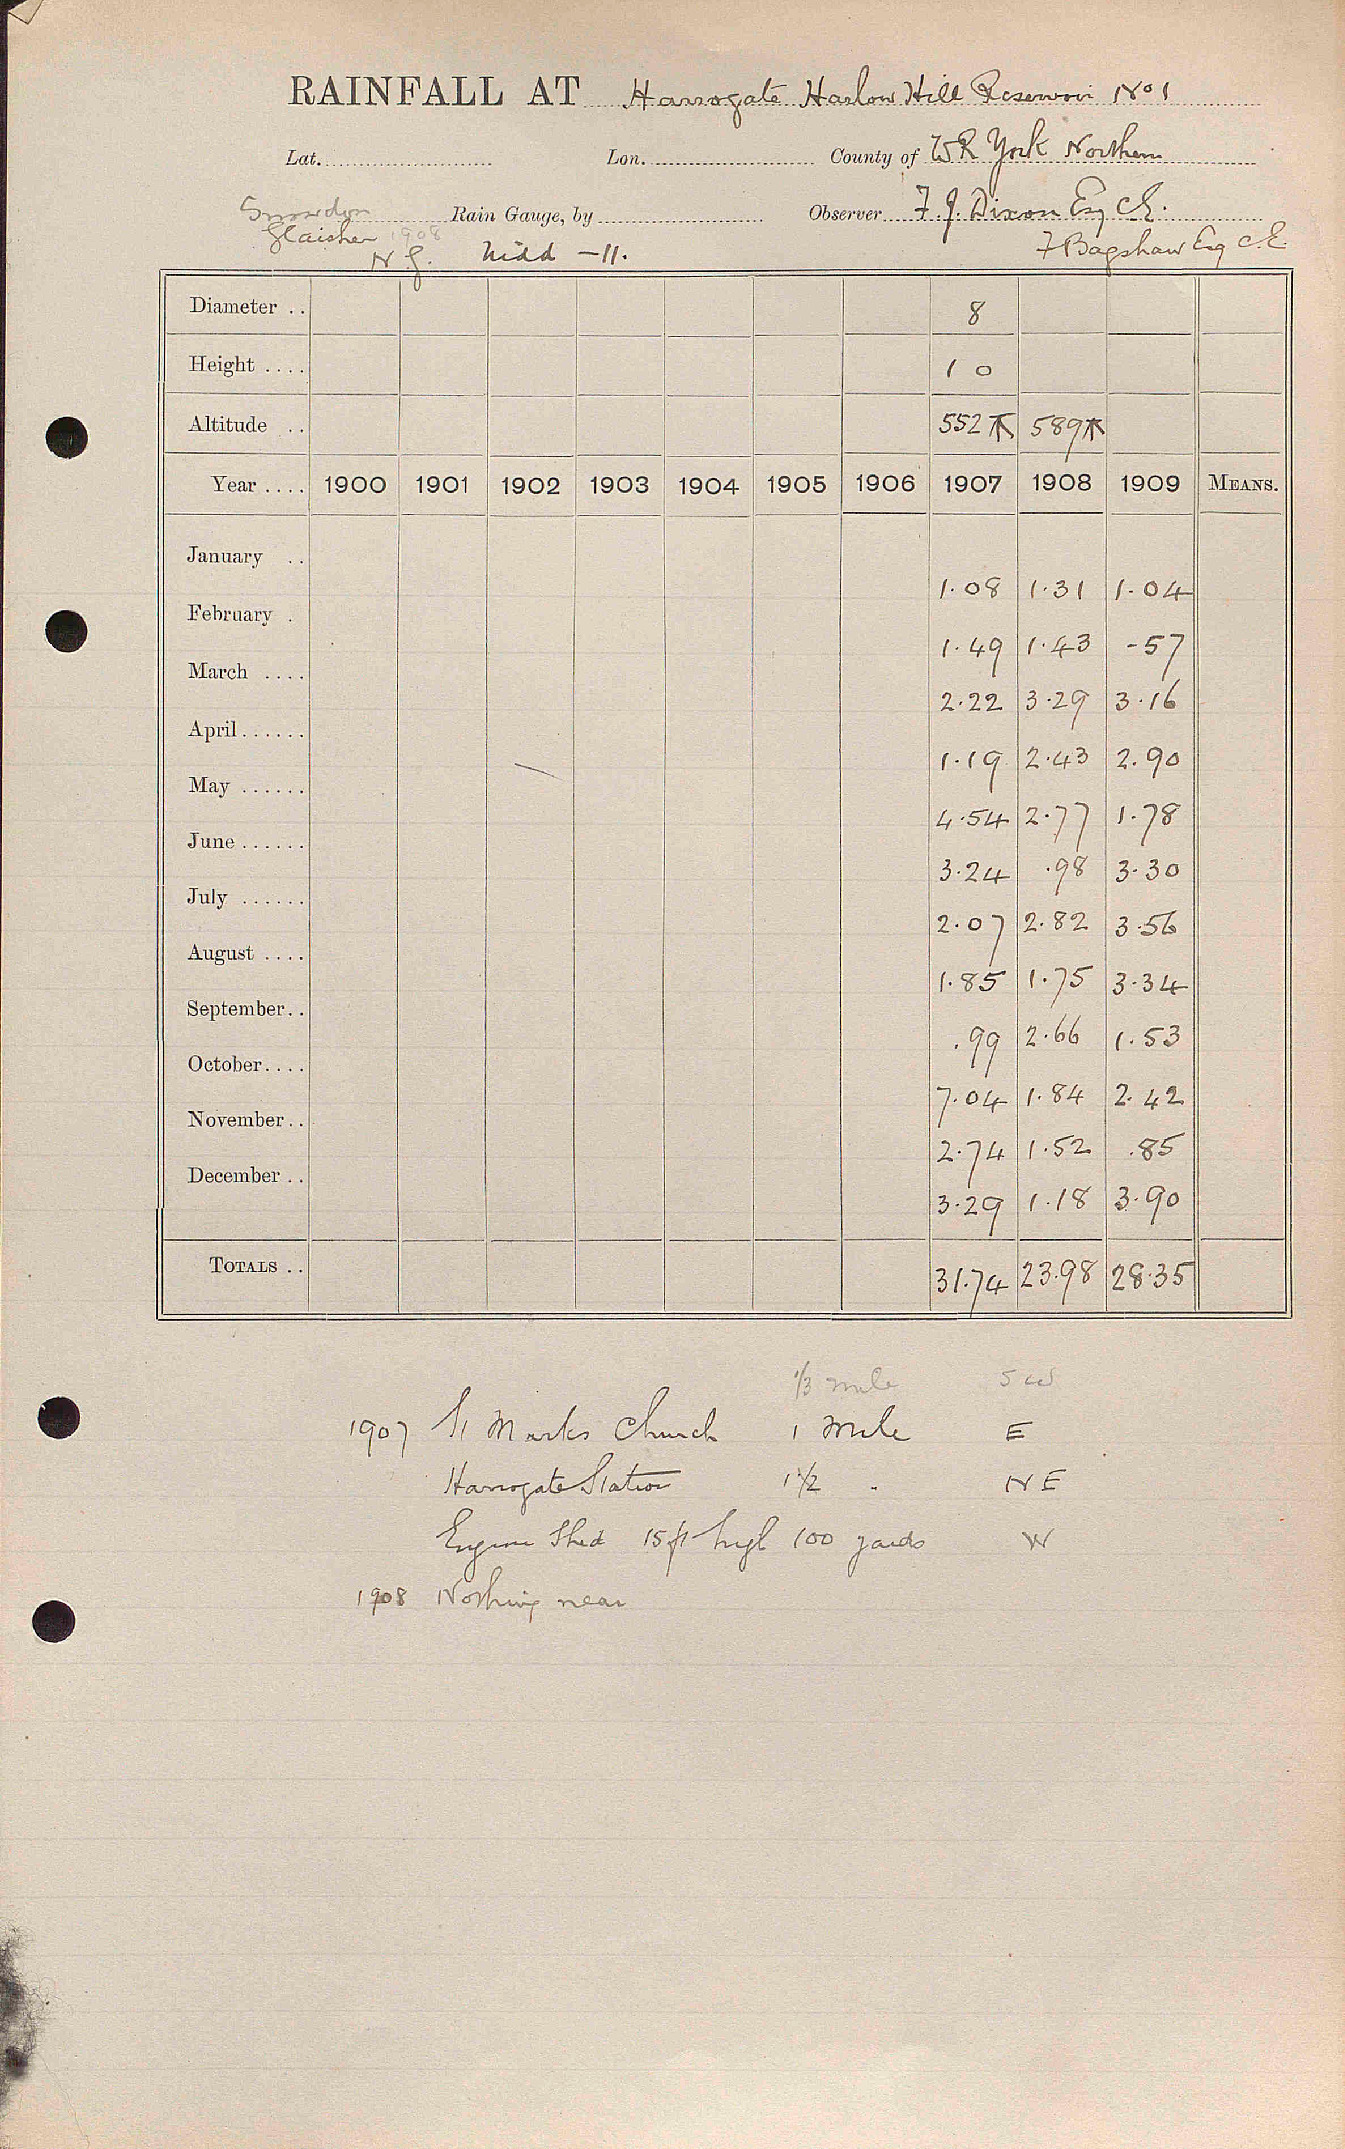 RAINFALL AT Harrogate Harlow Hill Reservoir No 1
Lat. Lon. County of WR York Northern
Snowdon Rain Gauge, by Observer F. J. Dixon Esq C.E.
Glaisher 1908 F Bagshaw Esq C E
N. G. Nidd - 11.
Diameter .. 8
Height .... 10
Altitude .. 552 589
Year .... 1900 1901 1902 1903 1904 1905 1906 1907 1908 1909 MEANS.
January .. 1.08 1.31 1.04
February . 1.49 1.43 -57
March .... 2.22 3.29 3.16
April...... 1.19 2.43 2.90
May ...... 4.54 2.77 1.78
June ...... 3.24 .98 3.30
July ...... 2.07 2.82 3.56
August .... 1.85 1.75 3.34
September.. .99 2.66 1.53
October.... 7.04 1.84 2.42
November.. 2.74 1.52 .85
December .. 3.29 1.18 3.90
TOTALS .. 31.74 23.98 28.35
1/3 mile SW
1907 St Marks Church 1 mile E
Harrogate Station 1 1/2 " NE
Engine Shed 15 ft high 100 yards W
1908 Nothing near